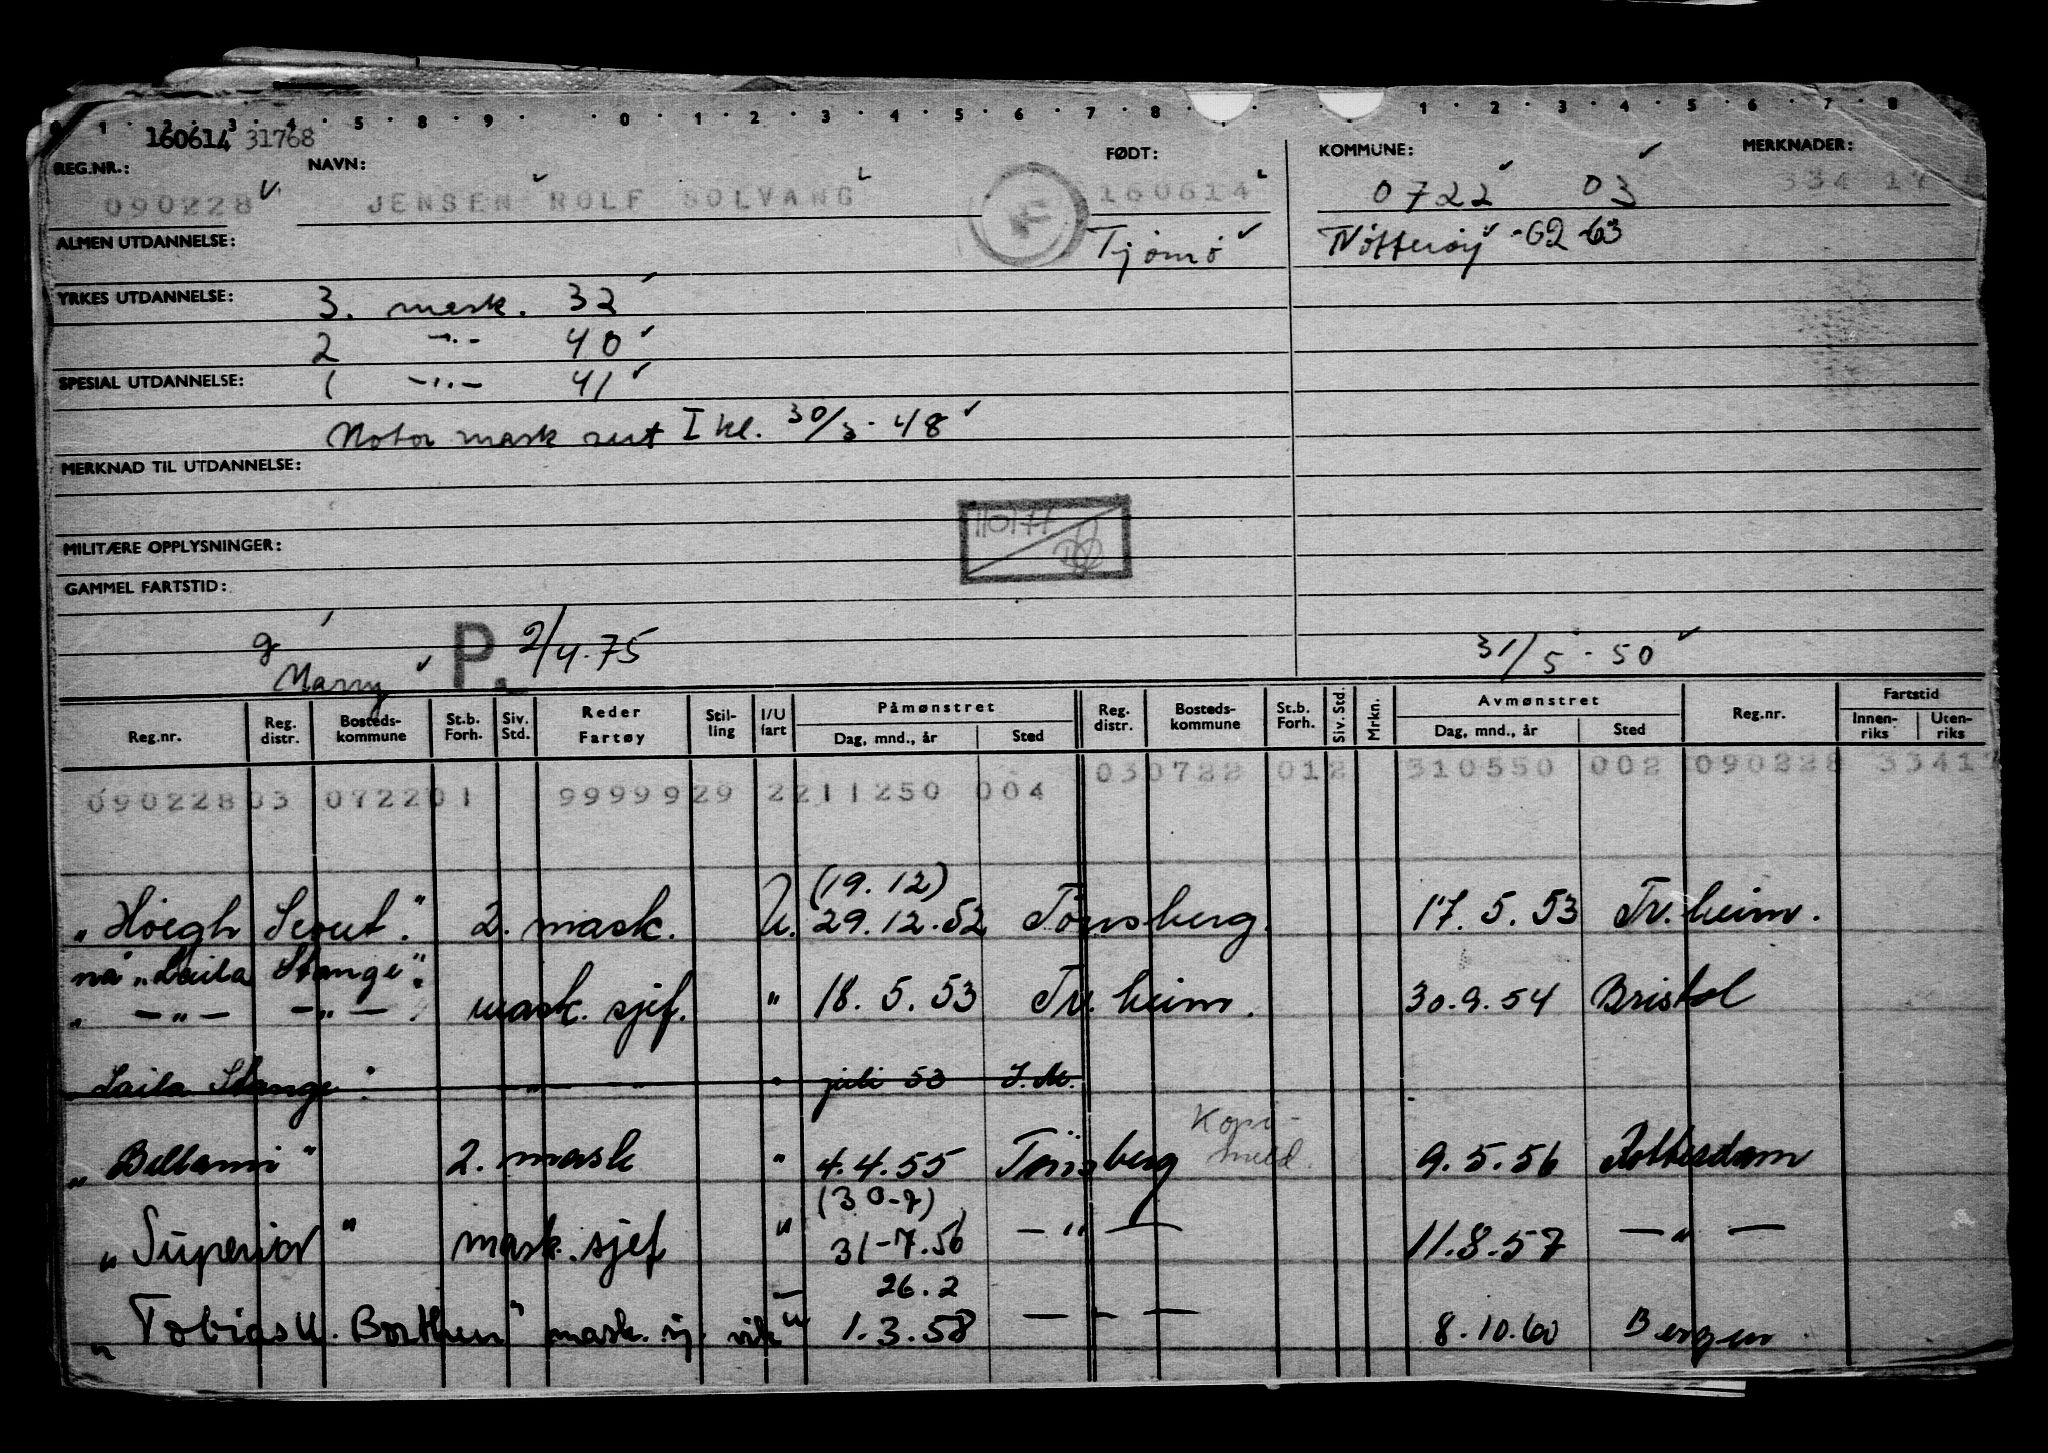 1 2 3 4 5 8 9 0 1 2 3 4 5 6 7 8 1 2 3 4 5 6 7 8
160614 31768
REG.NR.: NAVN: FØDT: KOMMUNE: MERKNADER:
090228 JENSEN ROLF SOLVANG 160614 0722 03 334 17
ALMEN UTDANNELSE: Tjømø Nøtterøy -62-63
YRKES UTDANNELSE: 3. mask. 32
2 -"- 40
SPESIAL UTDANNELSE: 1 -"- 41
Motor mask I kl. 30/3-48
MERKNAD TIL UTDANNELSE:
110177
MILITÆRE OPPLYSNINGER:
GAMMEL FARTSTID:
g
Marry P. 2/4.75 31/5-50
Reg.nr. Reg. distr. Bosteds-kommune St.b. Forh. Siv. Std. Reder Fartøy Stil-ling I/U fart Påmønstret Dag, mnd., år Sted Reg. distr. Bosteds-kommune St.b. Forh. Siv. Std. Mrkn. Avmønstret Dag, mnd., år Sted Reg.nr. Fartstid Innen-riks Uten-riks
030722 012 310550 002 090228 33417
09022803 072201 9999929 2211250 004
(19.12)
"Höegh Scout". 2. mask. U. 29.12.52 Tönsberg. 17.5.53 Tr.heim.
nå "Laila Stange".
" -"- -"- mask. sjef. " 18.5.53 Tr.heim. 30.9.54 Bristol
Laila Stange". " " " juli 53 I.M.
Kopi-
"Bellami" 2. mask " 4.4.55 Tönsberg meld. 9.5.56 Rotterdam
(30-7)
"Superior" mask. sjef " 31-7.56 -"- 11.8.57 -"-
26.2
"Tobias U. Borthen" mask. sj. vik " 1.3.58 -"- 8.10.60 Bergen